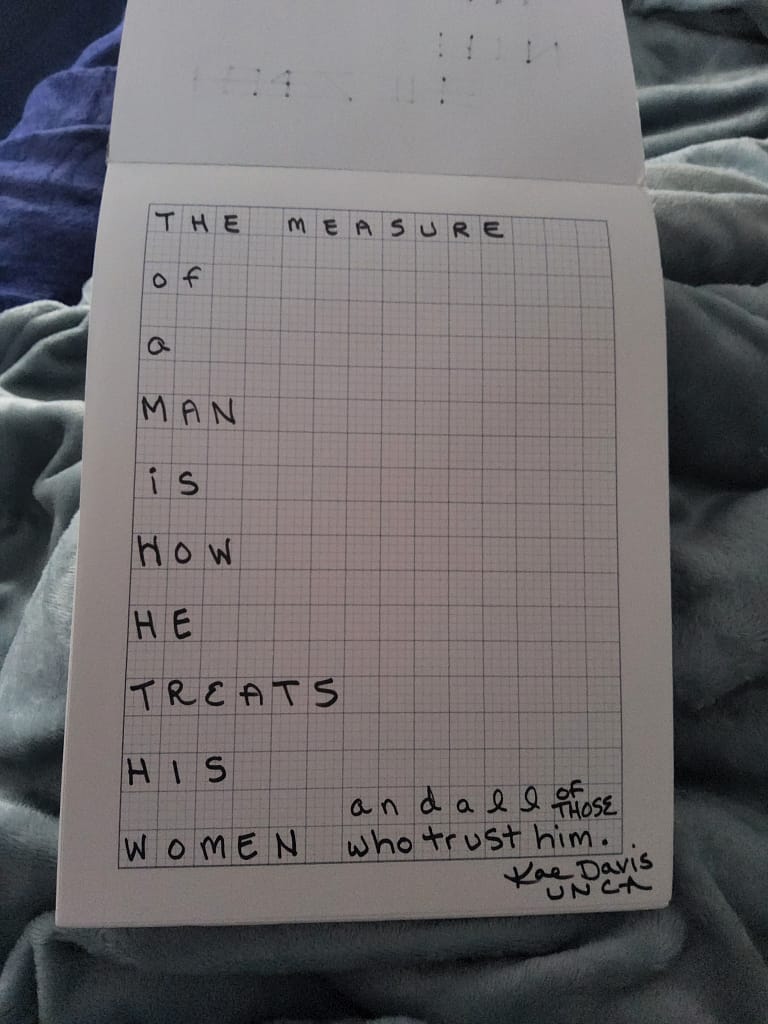 THE MEASURE
of
a
MAN
is
HOW
HE
TREATS
HIS
and all OF THOSE
WOMEN who trust him.
Kae Davis
UNCA